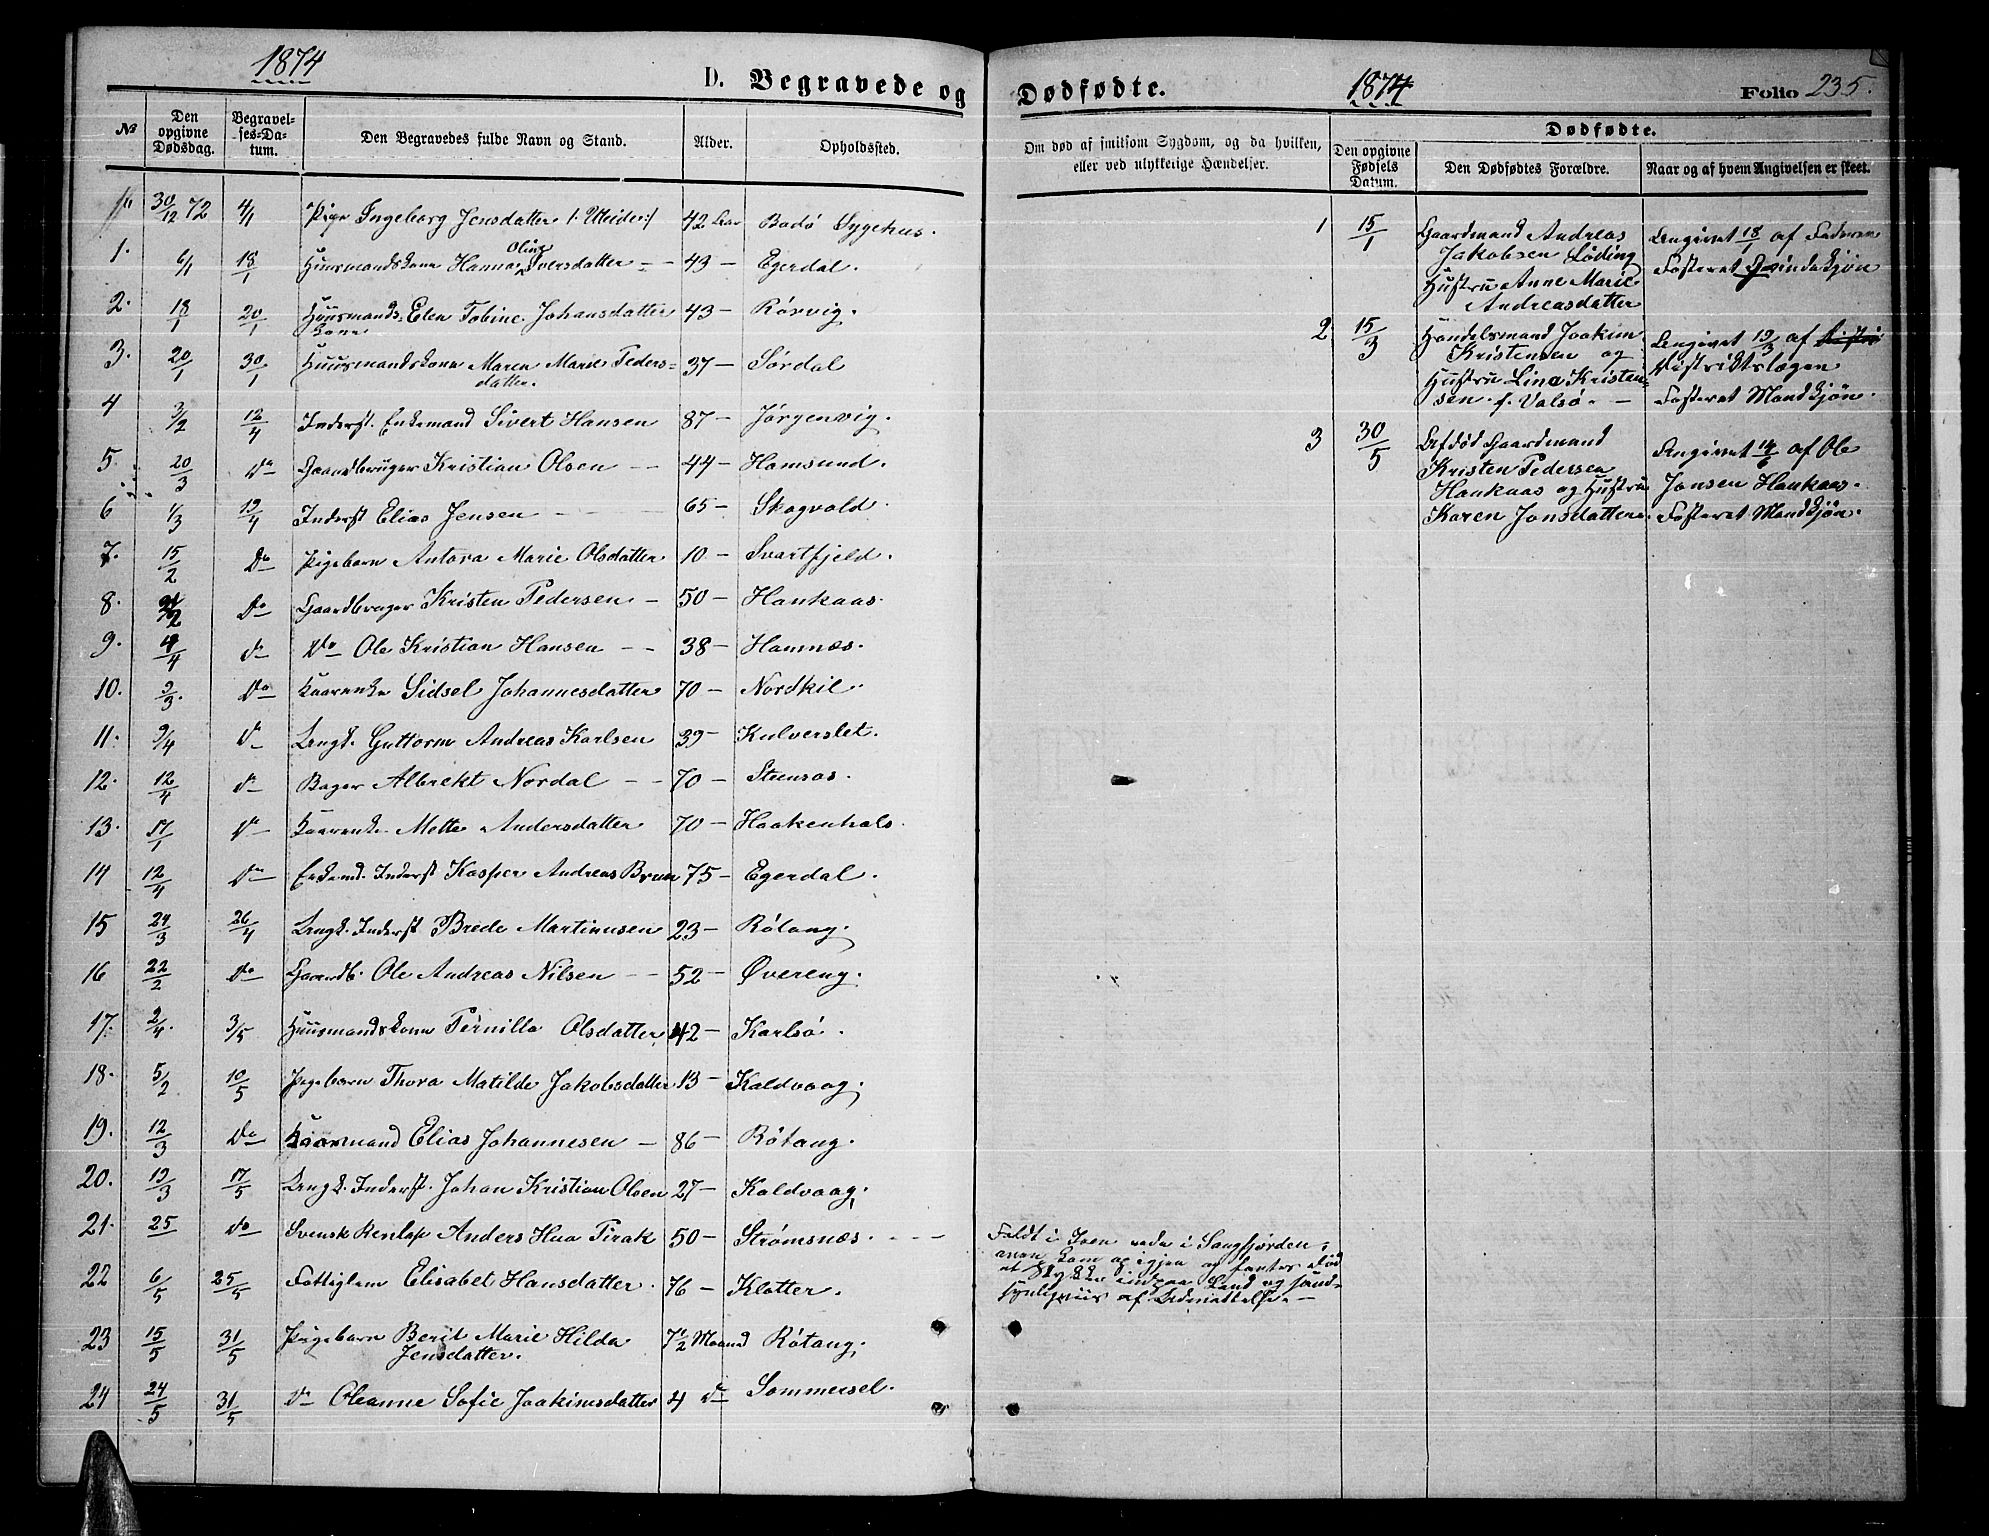 1874
D. Begravede og
№
Den opgivne Dødsdag.
Begravel-ses-Da-tum.
Den Begravedes fulde Navn og Stand.
Alder.
Opholdssted.
30/12 72 4/1 Pige Ingeborg Jensdatter 42 Aar Bodö Sygehus.
1. 6/1 18/1 Huusmandskone Hanna Oline Iversdatter 43 — Egerdal.
2. 18/1 20/1 Huusmands-kone Elen Tobine Johansdatter 43 — Rörvig.
3. 20/1 30/1 Huusmandskone Maren Marie Peders-datter. 37 — Sördal
4 3/2 12/4 Inderst. Enkemand Sivert Hansen 87 — Jörgenvig.
5. 20/3 Do Gaardbruger Kristian Olsen 44 — Hamsund.
6 1/3 Inderst Elias Jensen 65 — Skogvold.
7. 15/2 Do Pigebarn Antora Marie Olsdatter 10 — Svartfjeld.
8. Do Gaardbruger Kristen Pedersen 50 — Haukaas.
9. 4/4 Do Do Ole Kristian Hansen 38 — Hamnæs.
10. 9/3. Do Kaarenke Sidsel Johannesdatter 70 — Nordkil.
11. 9/4 Do Ungk. Guttorm Andreas Karlsen 39 — Kulverslet.
12. 12/4 Do Bager Albrekt Nordal 70 —
13. 17/1 Do Kaarenke Mette Andersdatter 70 — Haakenhals.
14 12/4 Do Enkemd. Inderst Kasper Andreas Brun 75 — Egerdal.
15 24/3 26/4 Ungk. Inderst Brede Martinusen 23 — Rötang.
16 22/2 Do Gaardb. Ole Andreas Nilsen 52 — Övereng.
17. 2/4. 3/5 Huusmandskone Pernilla Olsdatter 42 — Karlsö.
18. 5/2 10/5 Pigebarn Thora Matilde Jakobsdatter 13 — Kaldvaag.
19. 12/3 Do Kaarmand Elias Johannesen 86 — Rötang.
20. 17/5 Ungk. Inderst. Johan Kristian Olsen 27 — Kaldvaag.
21. 25 Do Svensk Renlap Anders Pirak 50 — Strømsnæs.
22 6/5 25/5 Fattiglem Elisabet Hansdatter. 76 — Klotter.
23 15/5 31/5 Pigebarn Berit Marie Hilda Jensdatter. 7½ Maaned Rötang.
24 24/5 31/5 Do Oleanne Sofie Joakimsdatter 4 Do Sommersel.
Dødfødte.
1874
Folio 235.
Om død af smitsom Sygdom, og da hvilken, eller ved ulykkelige Hændelser.
Dødfødte.
Den opgivne Fødsels Datum.
Den Dødfødtes Forældre.
Naar og af hvem Angivelsen er skeet.
1 15/1 Gaardmand Andreas
Jakobsen Löding
Hustru Anne Marie
Andreasdatter
Angivet 18/1 af Faderen
Fosteret Qvindekjön
2 15/3 Handelsmand Joakim
Kristensen og
Hustru Lina Kristen-
sen f. Valsö.
Angivet 19/3 af
Distriktslægen
Fosteret Mandkjön.
3 30/5 Afdöd Gaardmand
Kristen Pedersen
Haukaas og Hustru
Karen Jonsdatter.
Angivet 14/6 af Ole
Jonsen Haukaas.
Fosteret Mandkjön.
Faldt i Isen i Sangfjorden,
man kom op igjen og fantes död
et Stykke indpaa Land og sand-
synligviis af Udmattelse.